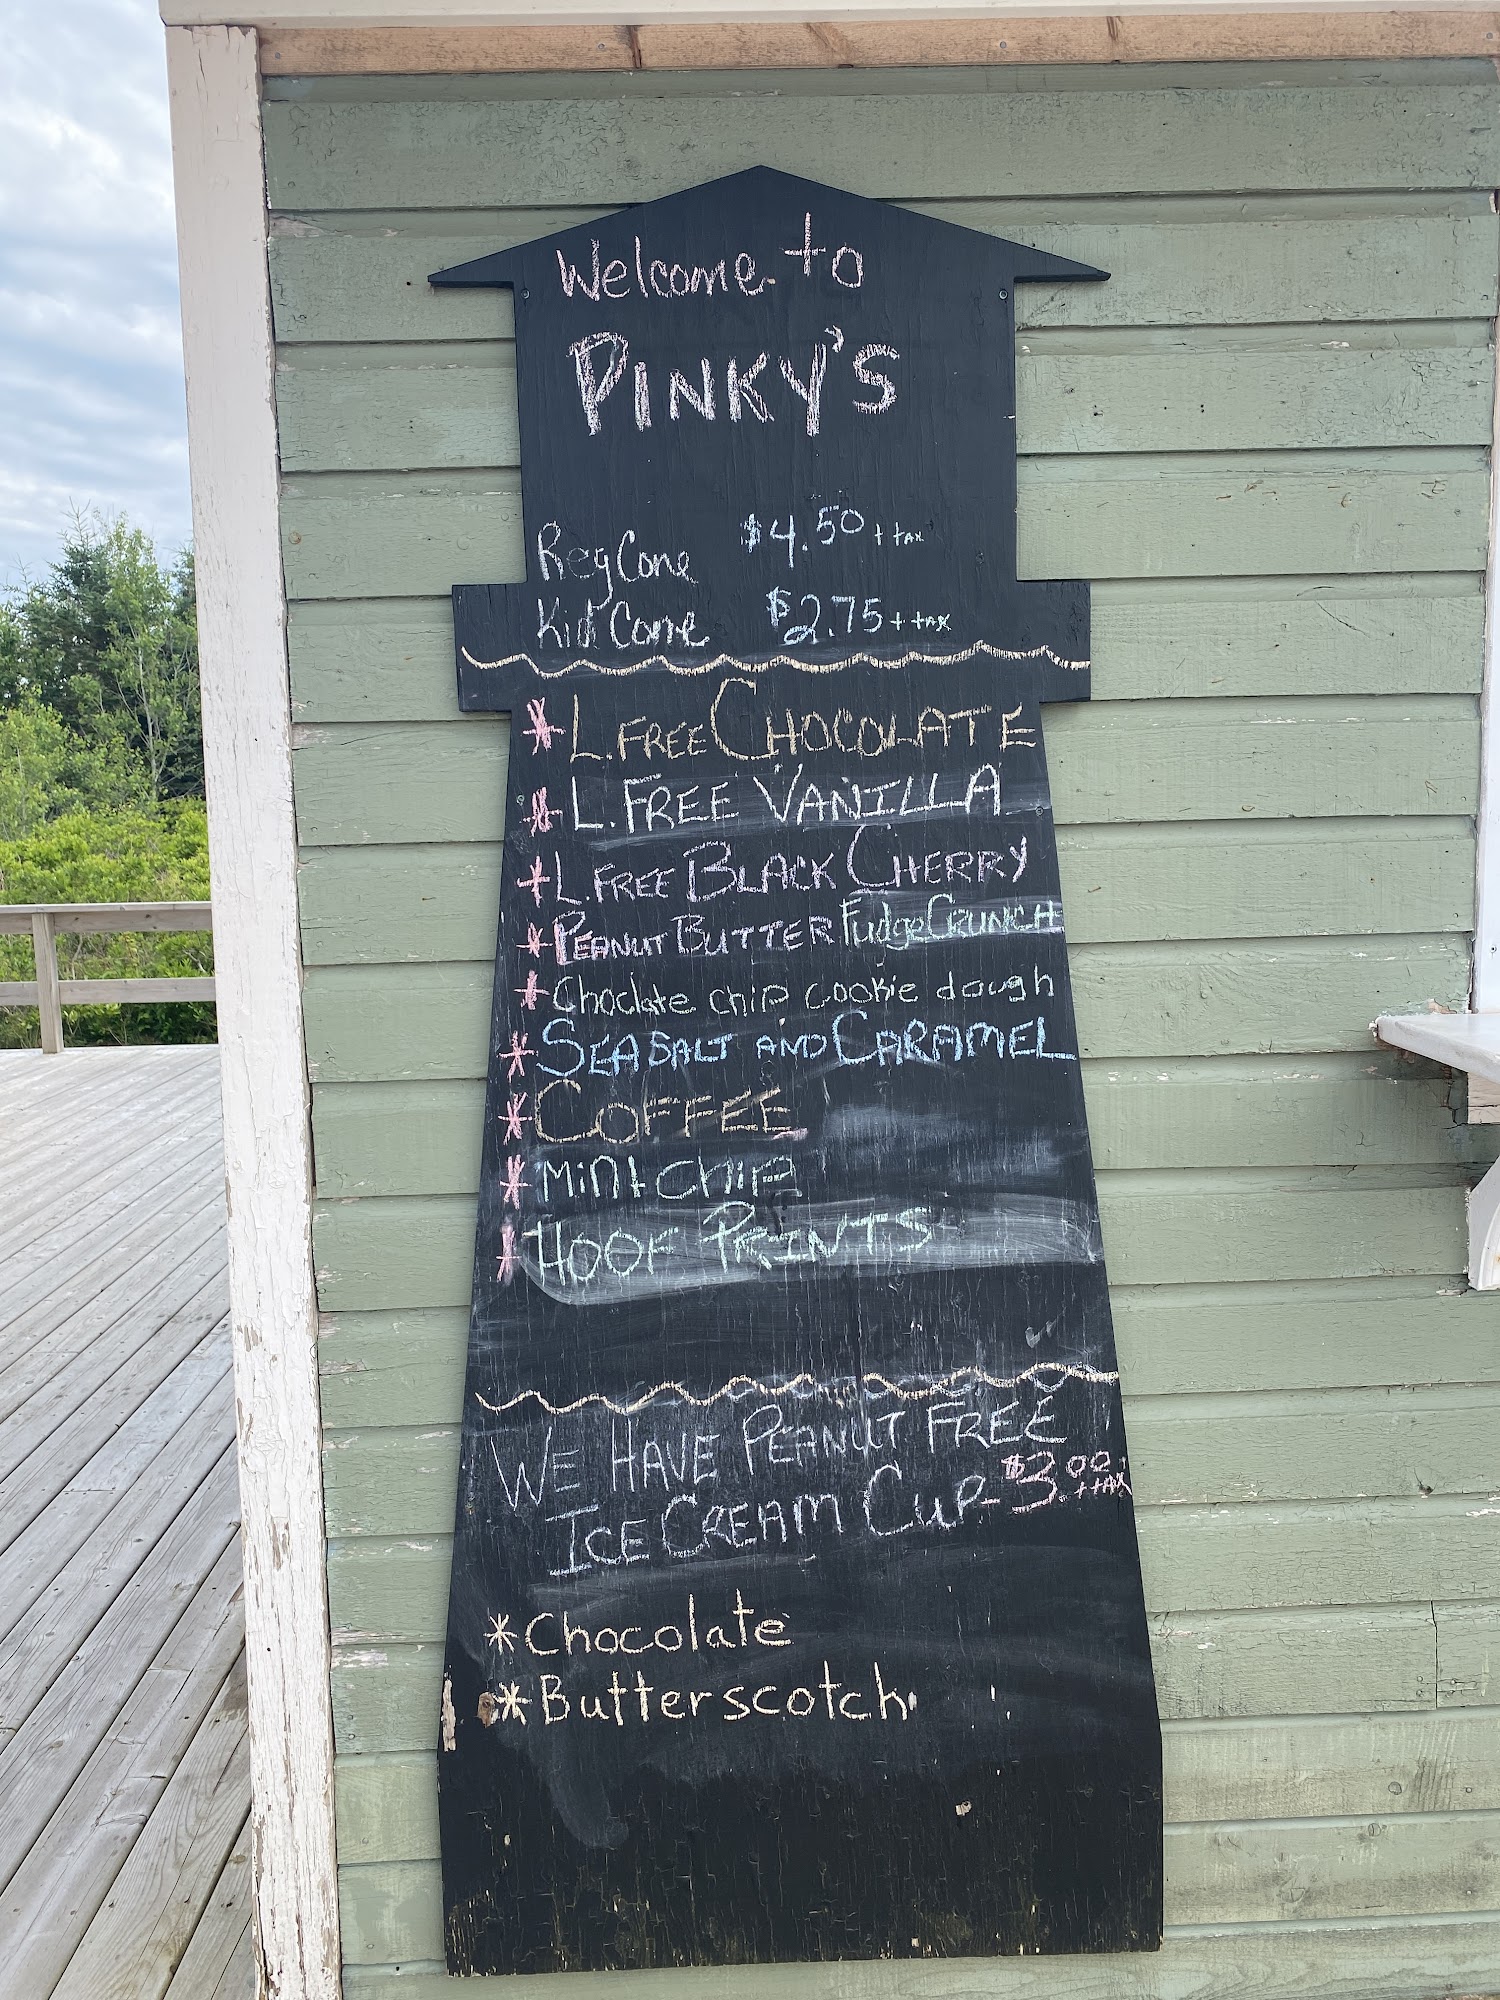 Welcome to
PINKY'S
Reg Cone $4.50 + tax
Kid Cone $2.75 + tax
* L. FREE CHOCOLATE
* L. FREE VANILLA
* L. FREE BLACK CHERRY
* PEANUT BUTTER Fudge CRUNCH
* Choclate chip cookie dough
* SEA SALT AND CARAMEL
* COFFEE
* Mint chip
* HOOF PRINTS
WE HAVE PEANUT FREE
ICE CREAM CUP - $3.00 + TAX
* Chocolate
* Butterscotch